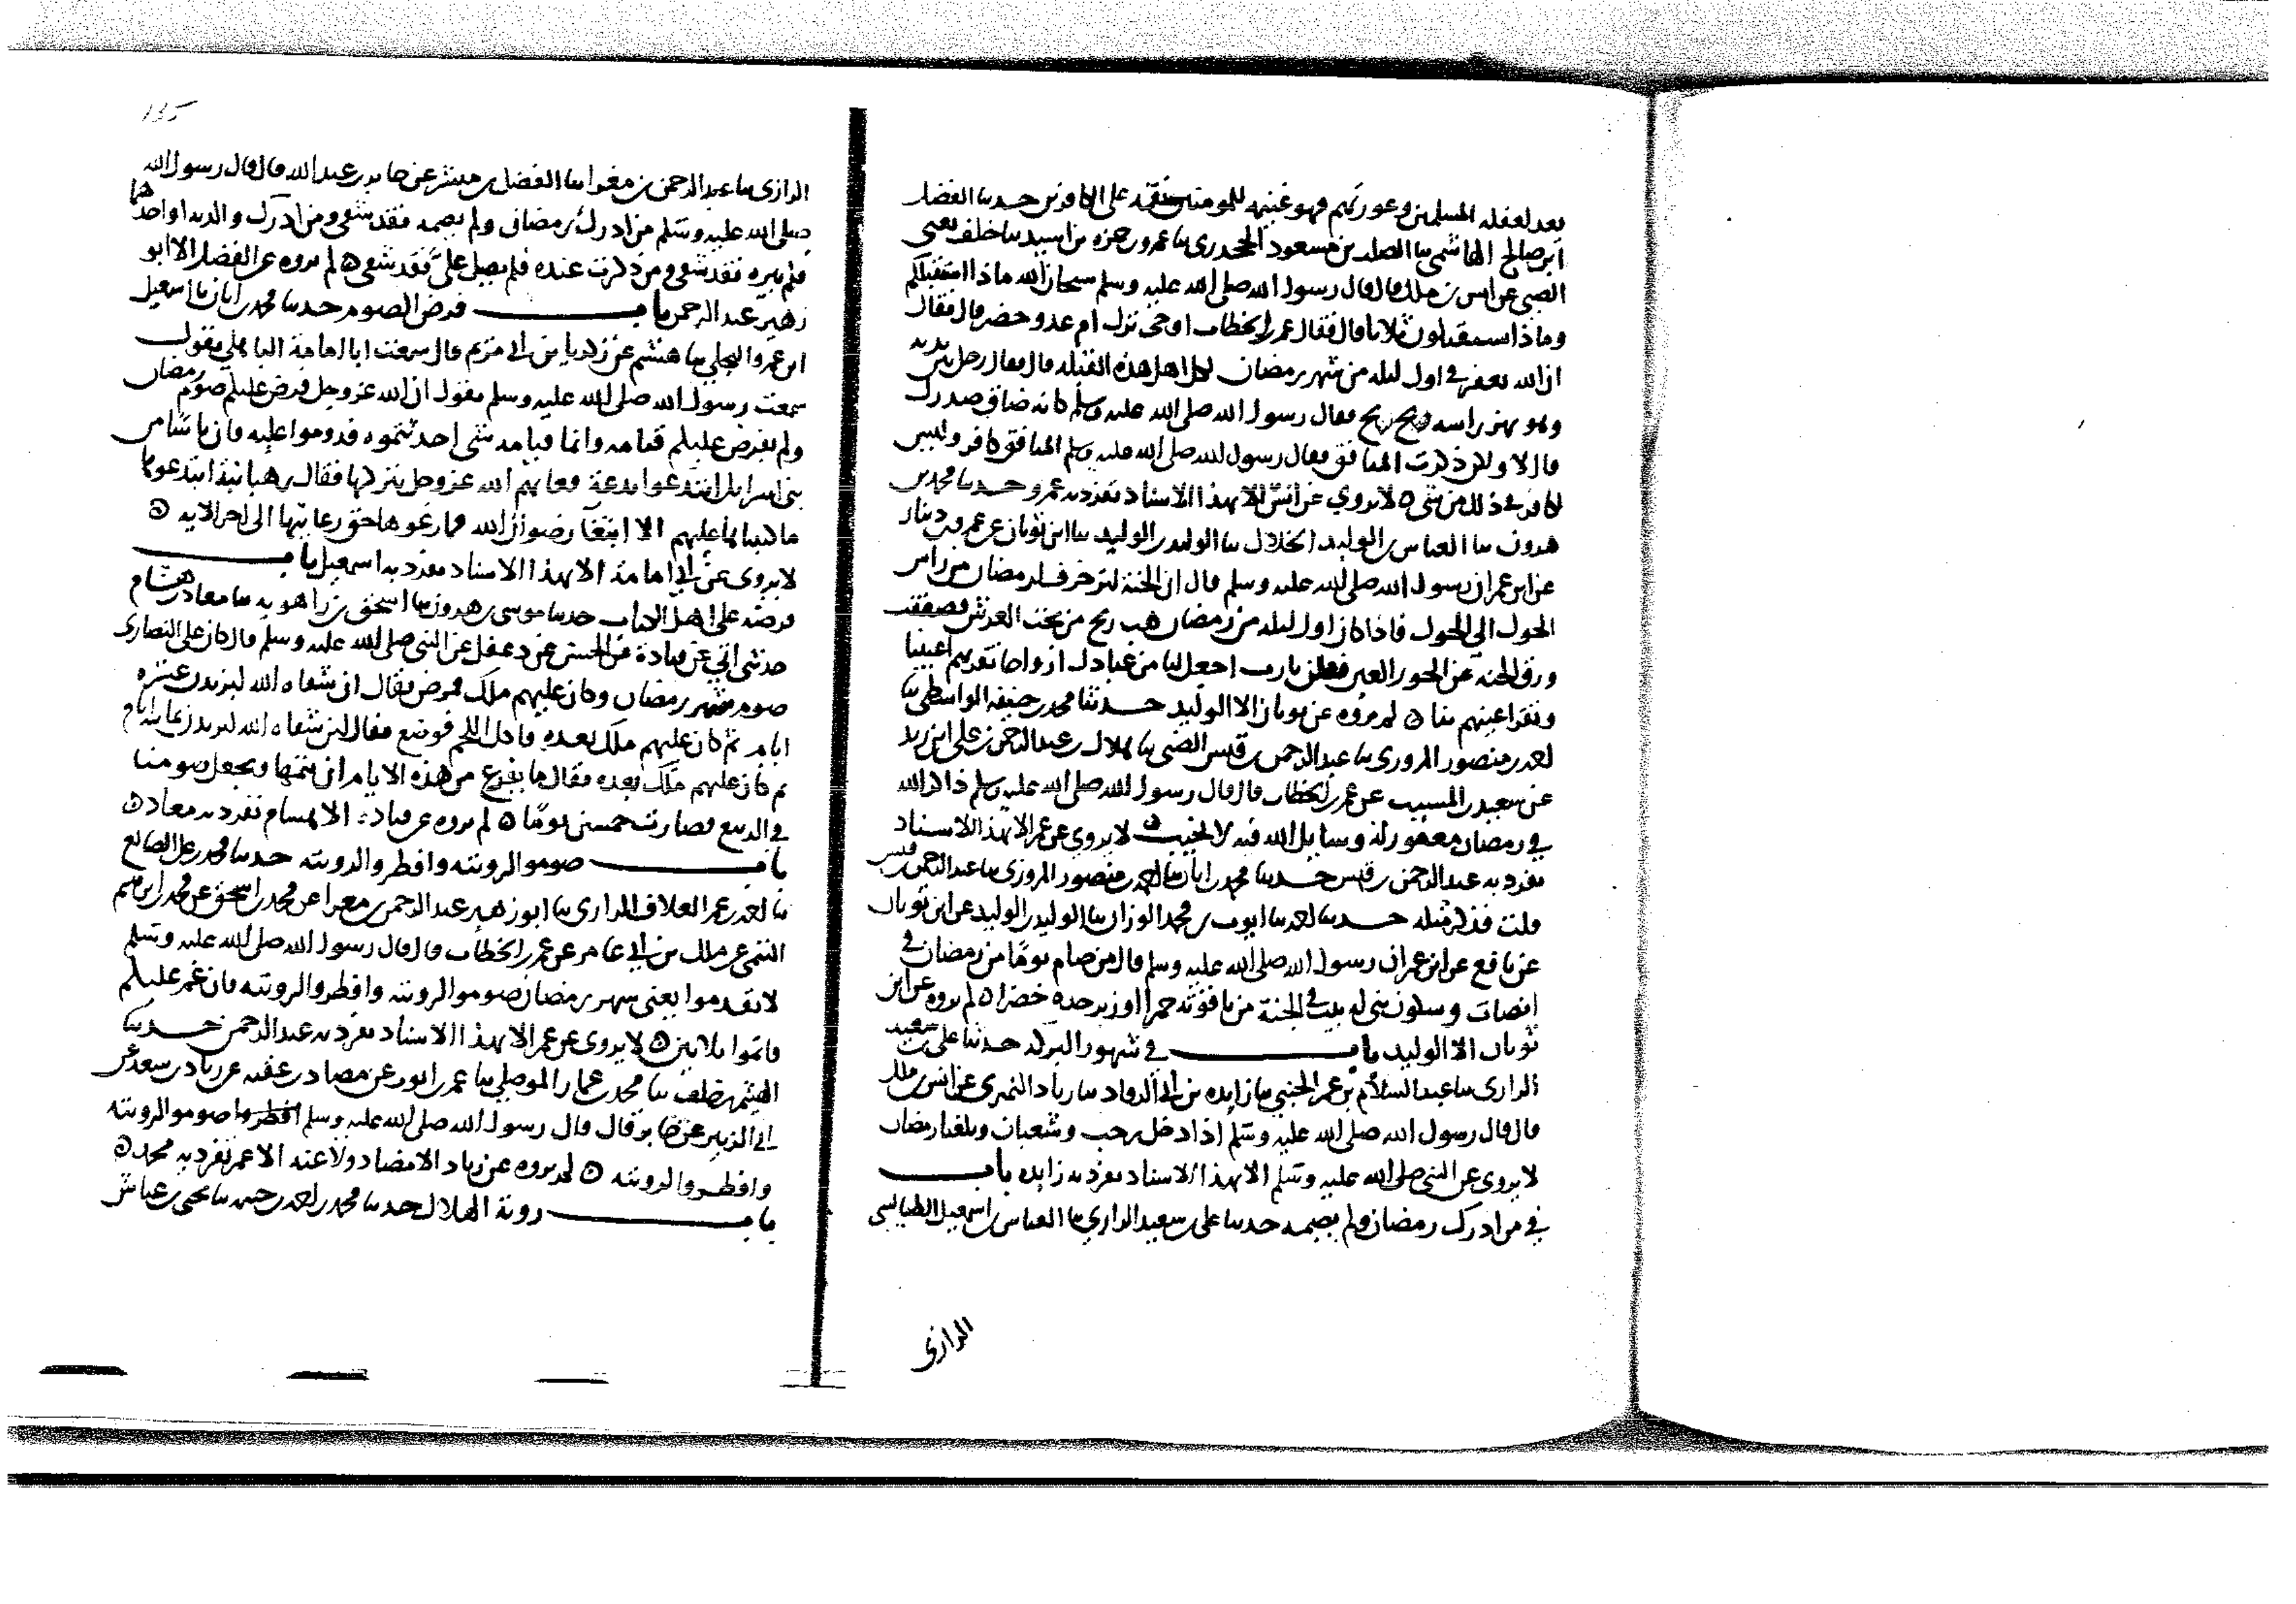 يعد لغفله المسلمين وعوراتهم فهو غنيمه للمومنين ونقمة على الكافرين حدثنا الفضل
ابن صالح الهاشمي ثنا الصلت بن مسعود الجحدري ثنا عمرو بن حمزه بن اسيد ثنا خلف يعني
الضبي عن انس بن ملك قال قال رسول الله صلى الله عليه وسلم سبحان الله ماذا استقبلكم
وماذا تستقبلون ثلاثا قال فقال عمر بن الخطاب اوحي نزل ام عدو حضر قال فقال
ان الله يغفر في اول ليله من شهر رمضان لكل اهل هذه القبله قال فقال رجل بين يديه
وهو يهز راسه بخ بخ فقال رسول الله صلى الله عليه وسلم كانه ضاق صدرك
قال لا ولكن ذكرت المنافق فقال رسول الله صلى الله عليه وسلم المنافق كافر وليس
لكافر في ذلك من شي ه لا يروى عن انس الا بهذا الاسناد تفرد به عمرو حدثنا محمد بن
هرون ثنا العباس بن الوليد الخلال ثنا الوليد بن الوليد ثنا ابن ثوبان عن عمرو بن دينار
عن ابن عمر ان رسول الله صلى الله عليه وسلم قال ان الجنة لتزخرف لرمضان من راس
الحول الى الحول فاذا كان اول ليله من رمضان هبت ريح من تحت العرش فصفقت
ورق الجنه عن الحور العين فقلن يارب اجعل لنا من عبادك ازواجا تقر بهم اعيننا
وتقر اعينهم بنا ه لم يروه عن ثوبان الا الوليد حدثنا محمد بن حنيفه الواسطي ثنا
احمد بن منصور المروزي ثنا عبد الرحمن بن قيس الضبي ثنا هلال بن عبد الرحمن عن علي بن زيد
عن سعيد بن المسيب عن عمر بن الخطاب قال قال رسول الله صلى الله عليه وسلم ذاكر الله
في رمضان مغفور له وسايل الله فيه لا يخيب ه لا يروى عن عمر الا بهذا الاسناد
تفرد به عبد الرحمن بن قيس حدثنا محمد بن ابان ثنا احمد بن منصور المروزي ثنا عبد الرحمن بن قيس
قلت فذكر مثله حدثنا احمد ثنا ايوب بن محمد الوزان ثنا الوليد بن الوليد عن ابن ثوبان
عن نافع عن ابن عمر ان رسول الله صلى الله عليه وسلم قال من صام يوما من رمضان في
انصات وسكون بني له بيت في الجنة من ياقوته حمرا او زبرجده خضرا ه لم يروه عن ابن
ثوبان الا الوليد باب في شهور البركه حدثنا علي بن سعيد
الرازي ثنا عبد السلام بن عمر الجنبي ثنا زايده بن ابي الرقاد ثنا زياد النميري عن انس بن ملك
قال قال رسول الله صلى الله عليه وسلم اذا دخل رجب وشعبان وبلغنا رمضان
لا يروى عن النبي صلى الله عليه وسلم الا بهذا الاسناد تفرد به زايده باب
في من ادرك رمضان ولم يصمه حدثنا علي بن سعيد الرازي ثنا العباس بن اسمعيل الطيالسي
الرازي
الرازي ثنا عبد الرحمن بن مغرا ثنا الفضل بن مبشر عن جابر بن عبد الله قال قال رسول الله
صلى الله عليه وسلم من ادرك رمضان ولم يصمه فقد شقي ومن ادرك والديه او احدهما
فلم يبره فقد شقي ومن ذكرت عنده فلم يصل علي فقد شقي ه لم يروه عن الفضل الا ابو
زهير عبد الرحمن باب فرض الصوم حدثنا محمد بن ابان ثنا اسمعيل
ابن عمرو البجلي ثنا هشيم عن زكريا بن ابي مريم قال سمعت ابا امامة الباهلي يقول
سمعت رسول الله صلى الله عليه وسلم يقول ان الله عز وجل فرض عليكم صوم رمضان
ولم يفرض عليكم قيامه وانما قيامه شي احدثتموه فدوموا عليه فان ناسا من
بني اسرايل ابتدعوا بدعة فعابهم الله عز وجل بتركها فقال رهبانية ابتدعوها
ما كتبناها عليهم الا ابتغا رضوان الله فما رعوها حق رعايتها الى اخر الايه ه
لا يروى عن ابي امامة الا بهذا الاسناد تفرد به اسمعيل باب
فرضه على اهل الكتاب حدثنا موسى بن هرون ثنا اسحق بن راهويه ثنا معاذ بن هشام
حدثني ابي عن قتادة عن الحسن عن دغفل عن النبي صلى الله عليه وسلم قال كان على النصارى
صوم شهر رمضان وكان عليهم ملك فمرض فقال ان شفاه الله ليزيدن عشرة
ايام ثم كان عليهم ملك بعده فاكل اللحم فوضع فقال لئن شفاه الله ليزيدن ثمانيه ايام
ثم كان عليهم ملك بعده فقال ما نفزع من هذه الايام ان نتمها ونجعل صومنا
في الربيع فصارت خمسين يوما ه لم يروه عن قتادة الا هشام تفرد به معاذ ه
باب صوموا لرويته وافطروا لرويته حدثنا محمد بن علي الصايغ
ثنا احمد بن عمر العلاف الرازي ثنا ابو زهير عبد الرحمن بن مغرا عن محمد بن اسحق عن محمد بن ابرهيم
التيمي عن ملك بن ابي عامر عن عمر بن الخطاب قال قال رسول الله صلى الله عليه وسلم
لا تقدموا يعني شهر رمضان صوموا لرويته وافطروا لرويته فان غم عليكم
فاتموا ثلاثين ه لا يروى عن عمر الا بهذا الاسناد تفرد به عبد الرحمن حدثنا
الهيثم بن خلف ثنا محمد بن عمار الموصلي ثنا عمر بن ايوب عن مصاد بن عقبه عن زياد بن سعد عن
ابي الزبير عن جابر قال قال رسول الله صلى الله عليه وسلم افطروا صوموا لرويته
وافطروا لرويته ه لم يروه عن زياد الا مصاد ولا عنه الا عمر تفرد به محمد ه
باب روية الهلال حدثنا محمد بن احمد بن ثنا يحيى بن عياش